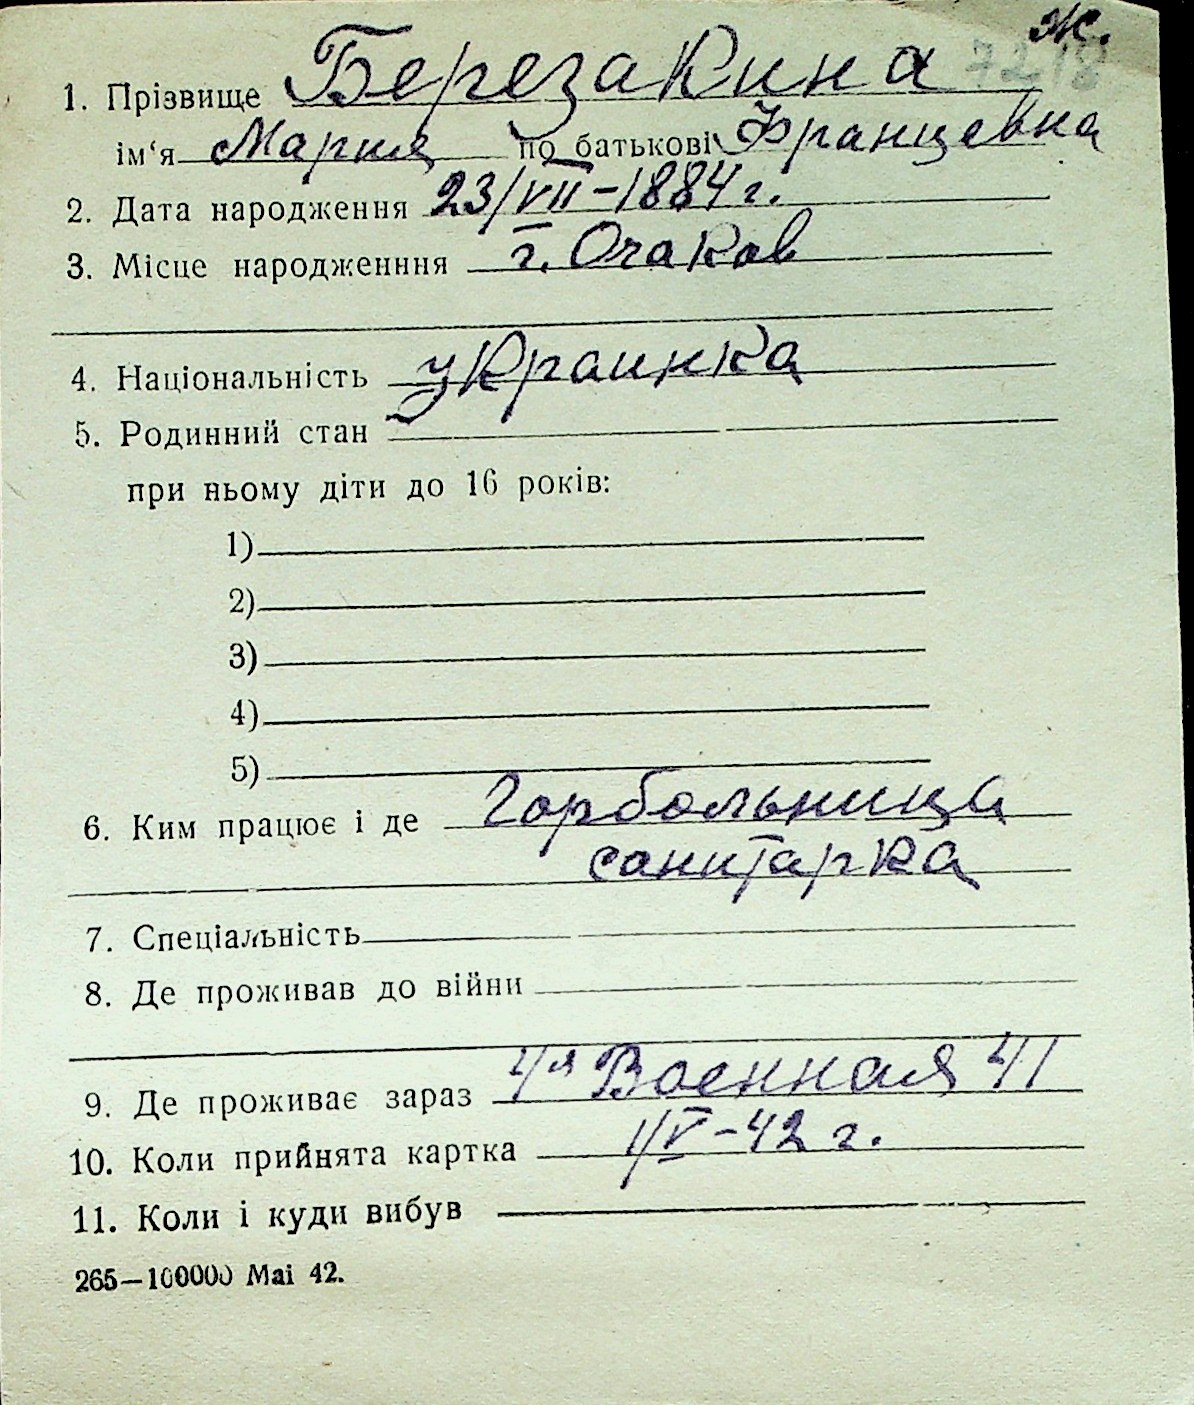 ж.
7218
1. Прізвище Березакина
ім‘я Мария по батькові Францевна
2. Дата народження 23/VII-1884 г.
3. Місце народженння г. Очаков
4. Національність украинка
5. Родинний стан
при ньому діти до 16 років:
1)
2)
3)
4)
5)
6. Ким працює і де Горбольница
санитарка
7. Спеціальність
8. Де проживав до війни
9. Де проживає зараз 4я Военная 41
10. Коли прийнята картка 1/V-42 г.
11. Коли і куди вибув
265—100000 Mai 42.